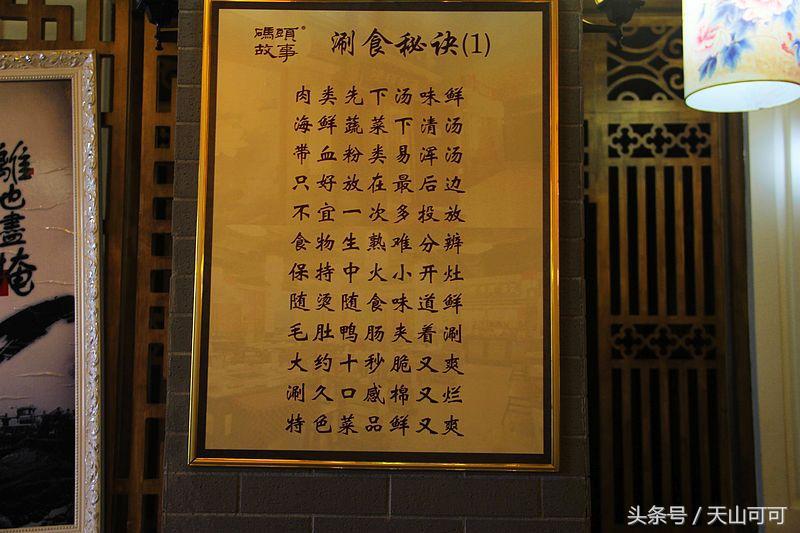 碼頭故事® 涮食秘诀(1)
肉类先下汤味鲜
海鲜蔬菜下清汤
带血粉类易浑汤
只好放在最后边
不宜一次多投放
食物生熟难分辨
保持中火小开灶
随烫随食味道鲜
毛肚鸭肠夹着涮
大约十秒脆又爽
涮久口感棉又烂
特色菜品鲜又爽
離也盡掩
头条号 / 天山可可